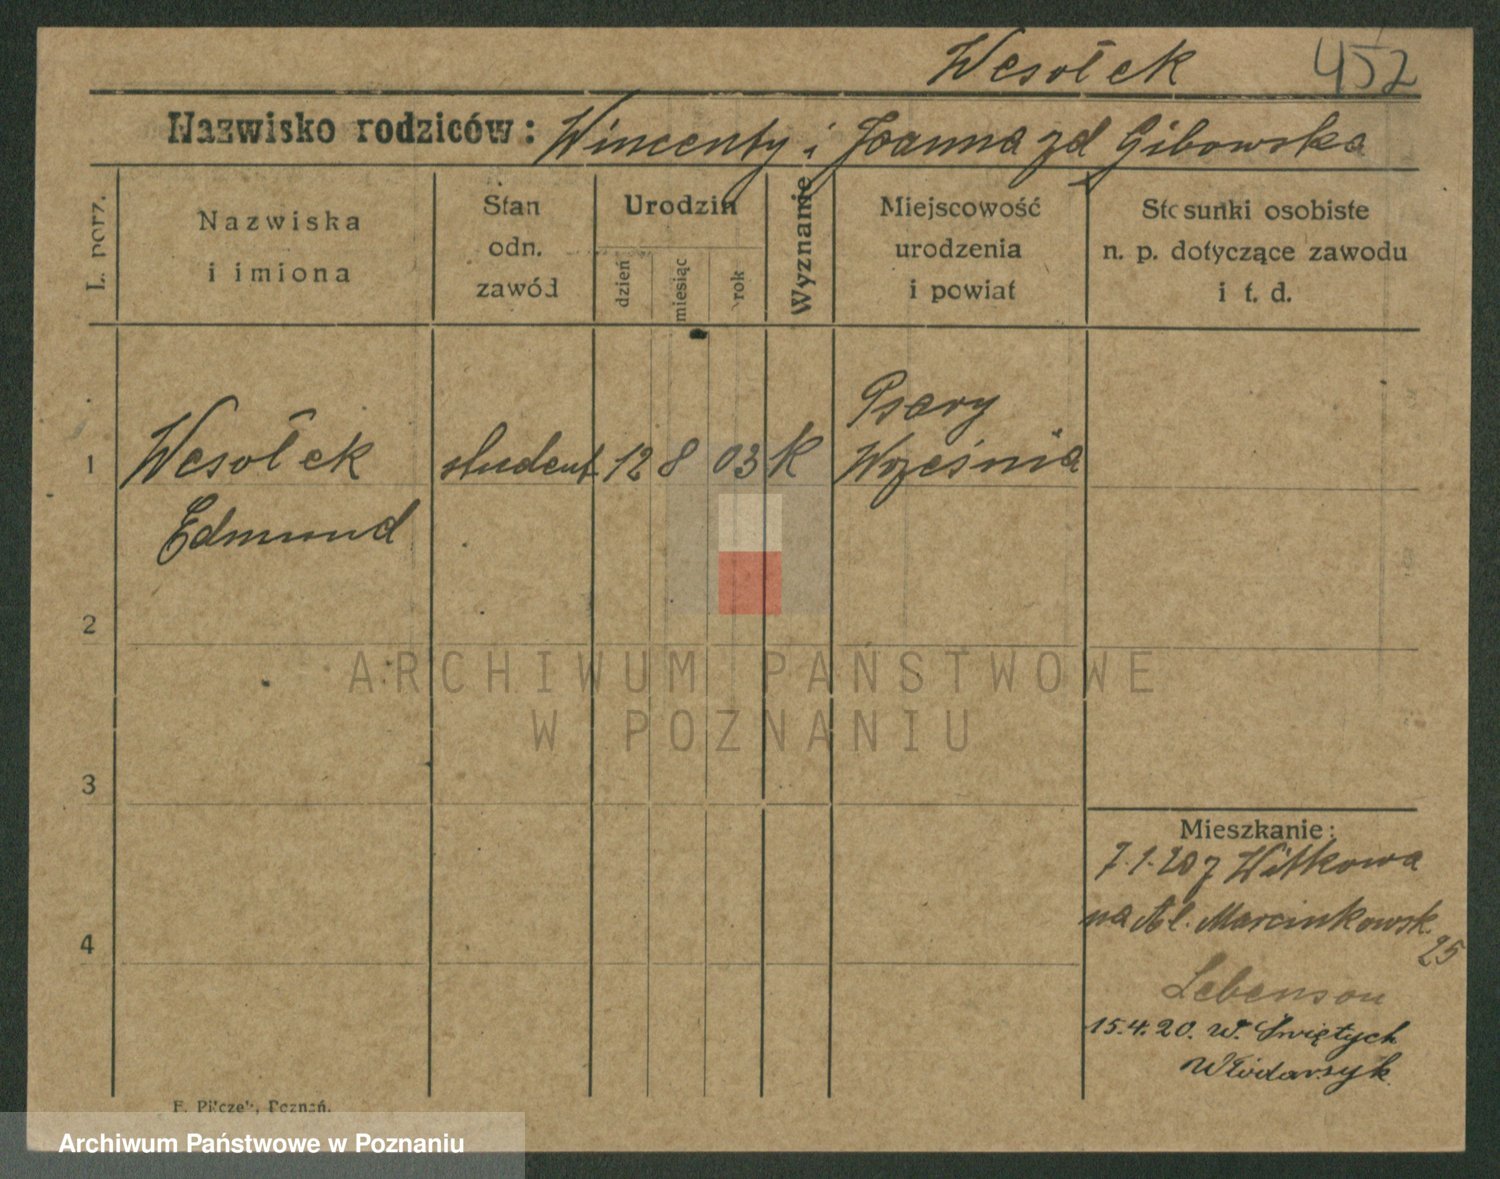 Wesołek 452
Nazwisko rodziców: Wincenty i Joanna zd Gibowska
L. porz.
Nazwiska
i imiona
Stan
odn.
zawód
Urodzin
dzień
miesiąc
rok
Wyznanie
Miejscowość
urodzenia
i powiat
Stosunki osobiste
n. p. dotyczące zawodu
i t. d.
1 Wesołek student 12 8 03 K Psary
Września
Edmund
2
3
4
Mieszkanie:
7.1.20 z Witkowa
na Al. Marcinkowsk.
25
Lebenson
15.4.20. W. Świętych
Włódarsyk.
F. Pilczek, Poznań.
ARCHIWUM PAŃSTWOWE
W POZNANIU
Archiwum Państwowe w Poznaniu